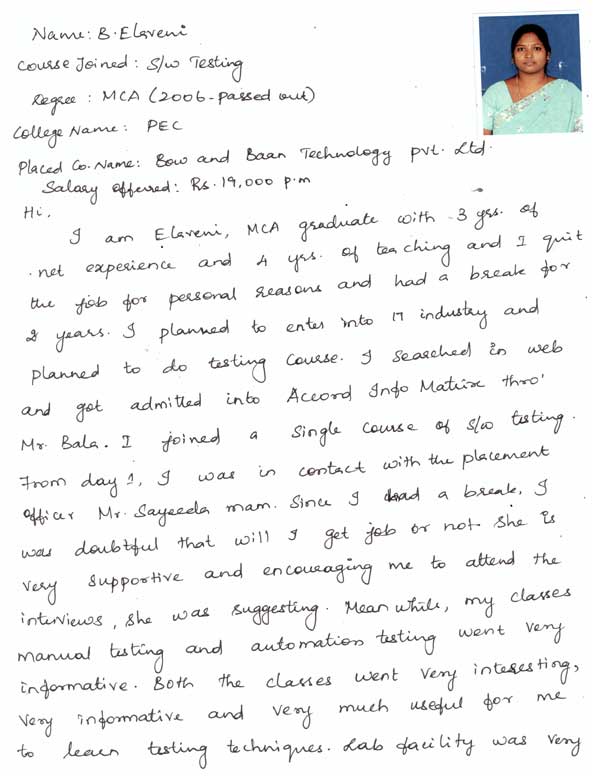 Name: B. Elaveni
Course Joined: S/w Testing
Degree: MCA (2006-passed out)
College Name: PEC
Placed Co. Name: Bow and Baan Technology pvt. Ltd.
Salary offerred: Rs. 19,000 p.m
Hi,
I am Elaveni, MCA graduate with 3 yrs. of
.net experience and 4 yrs. of teaching and I quit
the job for personal reasons and had a break for
2 years. I planned to enter into IT industry and
planned to do testing course. I searched in web
and got admitted into Accord Info Matrix thro'
Mr. Bala. I joined a single course of S/w testing.
From day 1, I was in contact with the placement
officer Mr. Sayeeda mam. Since I had a break, I
was doubtful that will I get job or not she is
very supportive and encouraging me to attend the
interviews, she was suggesting. Mean while, my classes
manual testing and automation testing went very
informative. Both the classes went very interesting,
very informative and very much useful for me
to learn testing techniques. Lab facility was very